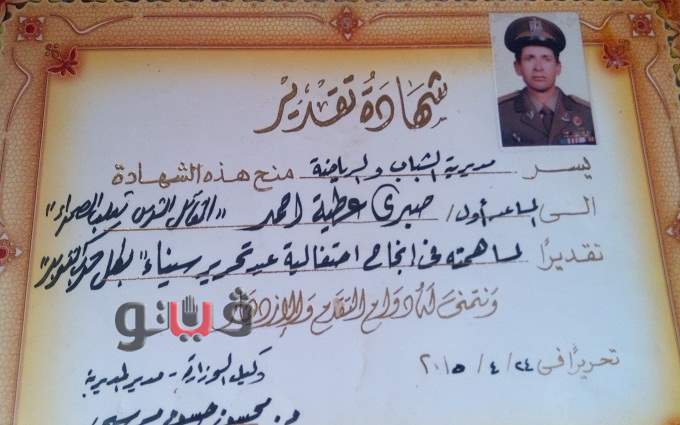 شهادة تقدير
يسر مديرية الشباب والرياضة منح هذه الشهادة
الى المساعد أول/ صبرى عطية احمد "المقاتل الشرس ثعلب الصحراء"
تقديرًا لمساهمته فى انجاح احتفالية عيد تحرير سيناء "بطل حرب اكتوبر"
ونتمنى له دوام التقدم والازدهار
ڤيتو
تحريرًا فى ٢٤ / ٤ / ٢٠١٥
وكيل الوزارة - مدير المديرية